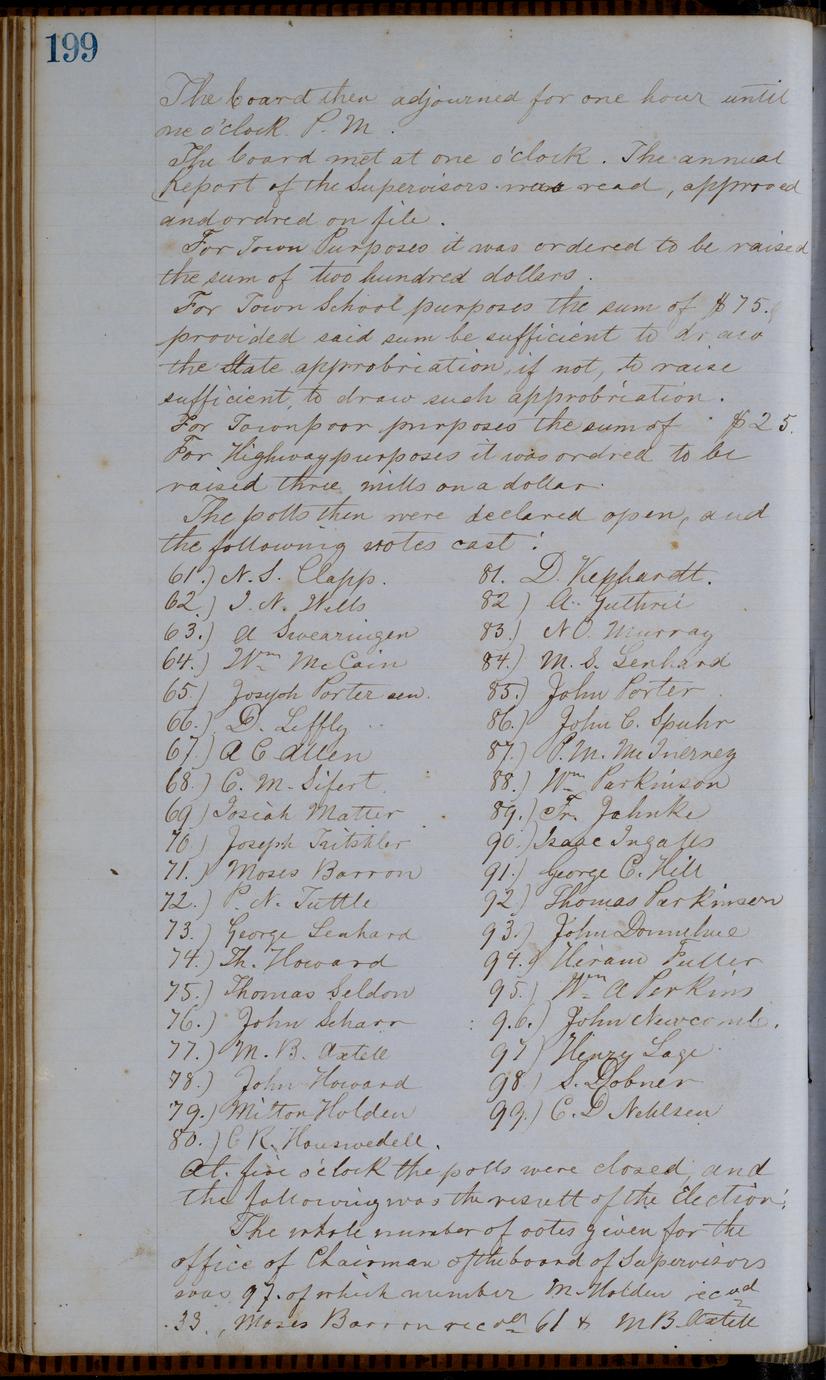 199
The board then adjourned for one hour until
ne o'clock P. M.
The board met at one o'clock. The annual
Report of the Supervisors was read, approved
and ordred on file.
For Town Purposes it was ordered to be raised
the sum of two hundred dollars.
For Town School purposes the sum of $75.
provided said sum be sufficient to draw
the State approbriation, if not, to raise
sufficient, to draw such approbriation.
For Townpoor purposes the sum of $25.
For Highway purposes it was ordred to be
raised three mills on a dollar.
The polls then were declared open, and
the following votes cast:
61.) N. S. Clapp.
62) J. N. Wells
63.) A Swearingen
64.) Wm McCain
65.) Joseph Porter sen.
66.) D. Leffly
67.) A C Allen
68.) C. M. Sifert
69) Josiah Matter
70.) Joseph Tritshler
71.) Moses Barron
72.) P. N. Tuttle
73.) George Lenhard
74.) Th. Howard
75.) Thomas Seldon
76.) John Scharr
77.) M. B. Axtell
78.) John Howard
79.) Milton Holden
80.) C R. Houswedell.
81. D. Kephardt.
82) A. Guthrie
83.) N O. Murray
84.) M. S. Lenhard
85.) John Porter
86.) John C. Spuhr
87.) P. M. McInerney
88.) Wm Parkinson
89.) Fr. Jahnke
90.) Isaac Ingalls
91.) George C. Hill
92) Thomas Parkinson
93.) John Donnehue
94.) Hiram Fuller
95.) Wm A Perkins
96.) John Newcomb.
97) Henry Lage
98) S. Dobner
99.) C. D Nehlsen
At. five o'clock the polls were closed, and
the following was the resultt of the Election:
The whole number of votes given for the
office of Chairman of the board of Supervisors
was 97. of which number M. Holden recvd
33, Moses Barron recvd 61 & M B. Axtell